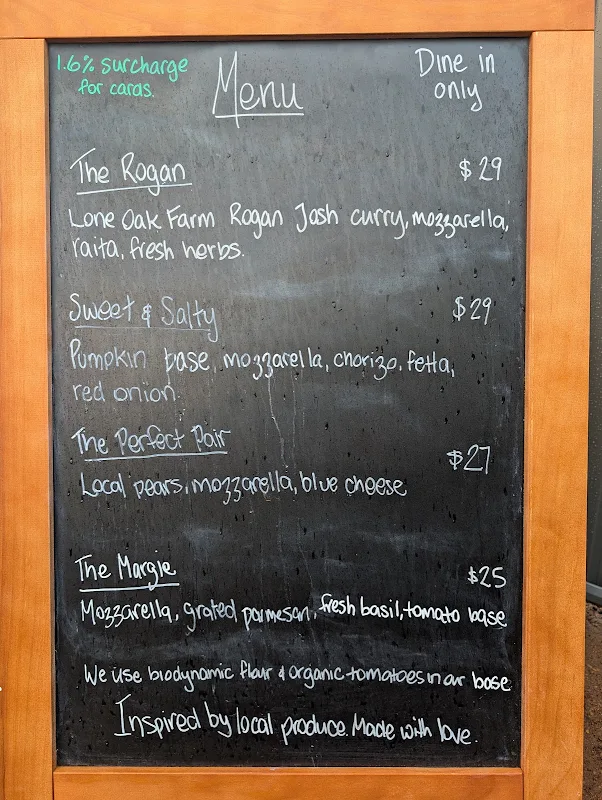 1.6% surcharge
for cards.
Menu
Dine in
only
The Rogan $29
Lone Oak Farm Rogan Josh curry, mozzarella,
raita, fresh herbs.
Sweet & Salty $29
Pumpkin base, mozzarella, chorizo, fetta,
red onion
The Perfect Pair $27
Local pears, mozzarella, blue cheese
The Margie $25
Mozzarella, grated parmesan, fresh basil, tomato base
We use biodynamic flour & organic tomatoes in our base
Inspired by local produce. Made with love.